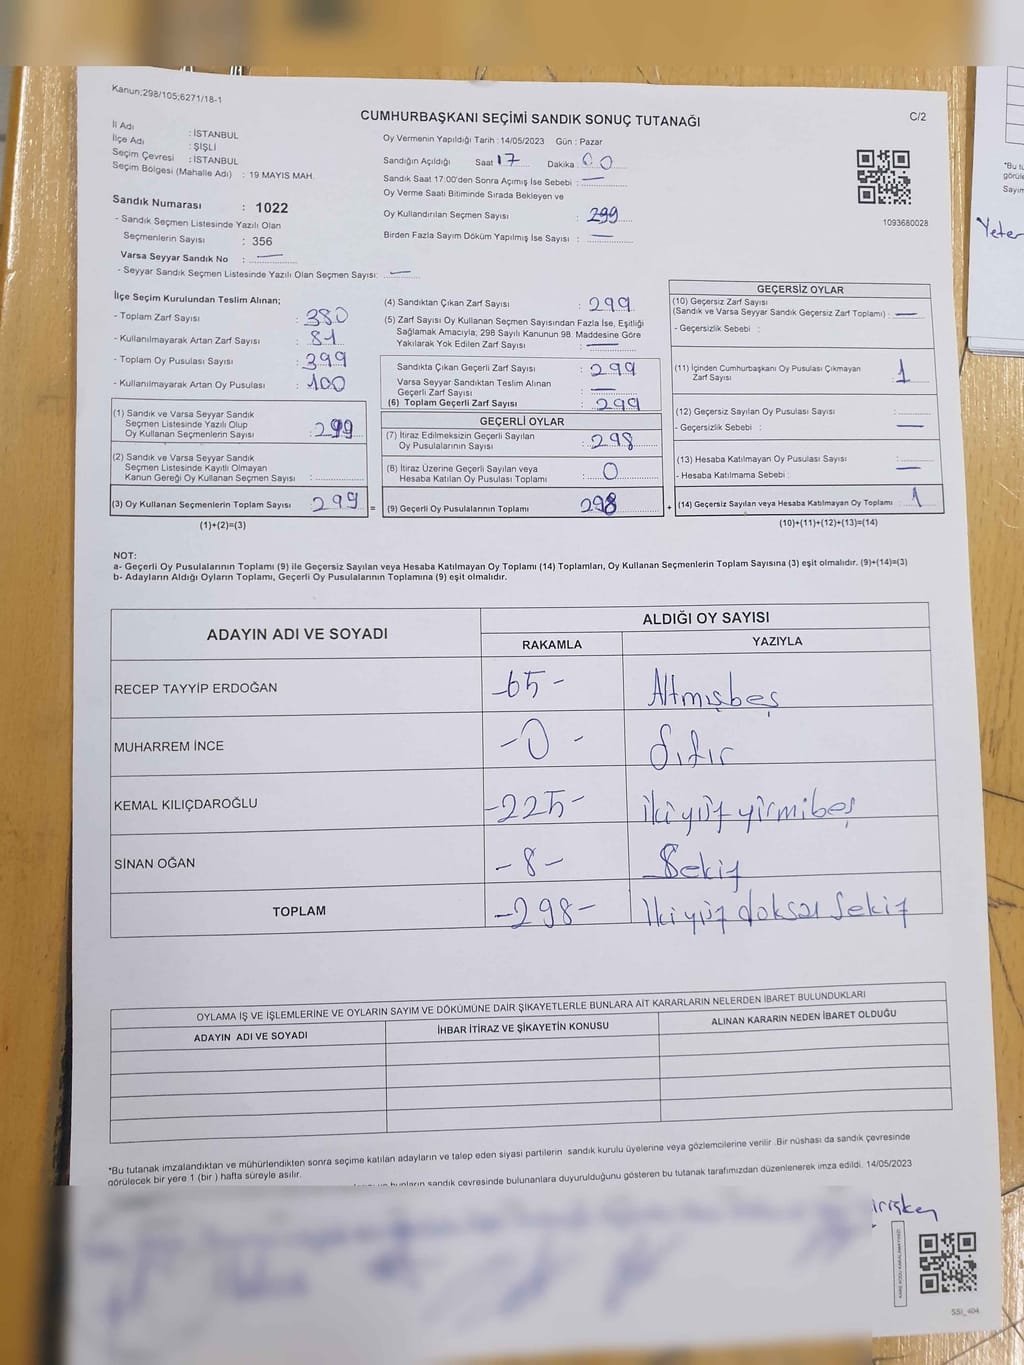 Kanun;298/105;6271/18-1
CUMHURBAŞKANI SEÇİMİ SANDIK SONUÇ TUTANAĞI
C/2
İl Adı : İSTANBUL
İlçe Adı : ŞİŞLİ
Seçim Çevresi : İSTANBUL
Seçim Bölgesi (Mahalle Adı) : 19 MAYIS MAH.
Sandık Numarası : 1022
- Sandık Seçmen Listesinde Yazılı Olan
Seçmenlerin Sayısı : 356
Varsa Seyyar Sandık No : —
- Seyyar Sandık Seçmen Listesinde Yazılı Olan Seçmen Sayısı: —
Oy Vermenin Yapıldığı Tarih : 14/05/2023 Gün : Pazar
Sandığın Açıldığı Saat 17 Dakika 00
Sandık Saat 17:00'den Sonra Açımış İse Sebebi : —
Oy Verme Saati Bitiminde Sırada Bekleyen ve
Oy Kullandırılan Seçmen Sayısı : 299
Birden Fazla Sayım Döküm Yapılmış İse Sayısı : —
1093680028
İlçe Seçim Kurulundan Teslim Alınan;
- Toplam Zarf Sayısı : 380
- Kullanılmayarak Artan Zarf Sayısı : 81
- Toplam Oy Pusulası Sayısı : 399
- Kullanılmayarak Artan Oy Pusulası : 100
(1) Sandık ve Varsa Seyyar Sandık
Seçmen Listesinde Yazılı Olup
Oy Kullanan Seçmenlerin Sayısı : 299
(2) Sandık ve Varsa Seyyar Sandık
Seçmen Listesinde Kayıtlı Olmayan
Kanun Gereği Oy Kullanan Seçmen Sayısı :
(3) Oy Kullanan Seçmenlerin Toplam Sayısı : 299 =
(1)+(2)=(3)
(4) Sandıktan Çıkan Zarf Sayısı : 299
(5) Zarf Sayısı Oy Kullanan Seçmen Sayısından Fazla İse, Eşitliği
Sağlamak Amacıyla; 298 Sayılı Kanunun 98. Maddesine Göre
Yakılarak Yok Edilen Zarf Sayısı : —
Sandıkta Çıkan Geçerli Zarf Sayısı : 299
Varsa Seyyar Sandıktan Teslim Alınan
Geçerli Zarf Sayısı : —
(6) Toplam Geçerli Zarf Sayısı : 299
GEÇERLİ OYLAR
(7) İtiraz Edilmeksizin Geçerli Sayılan
Oy Pusulalarının Sayısı : 298
(8) İtiraz Üzerine Geçerli Sayılan veya
Hesaba Katılan Oy Pusulası Toplamı : 0
(9) Geçerli Oy Pusulalarının Toplamı 298 +
GEÇERSİZ OYLAR
(10) Geçersiz Zarf Sayısı
(Sandık ve Varsa Seyyar Sandık Geçersiz Zarf Toplamı) : —
- Geçersizlik Sebebi :
(11) İçinden Cumhurbaşkanı Oy Pusulası Çıkmayan
Zarf Sayısı : 1
(12) Geçersiz Sayılan Oy Pusulası Sayısı :
- Geçersizlik Sebebi : —
(13) Hesaba Katılmayan Oy Pusulası Sayısı :
- Hesaba Katılmama Sebebi : —
(14) Geçersiz Sayılan veya Hesaba Katılmayan Oy Toplamı : 1
(10)+(11)+(12)+(13)=(14)
NOT:
a- Geçerli Oy Pusulalarının Toplamı (9) ile Geçersiz Sayılan veya Hesaba Katılmayan Oy Toplamı (14) Toplamları, Oy Kullanan Seçmenlerin Toplam Sayısına (3) eşit olmalıdır. (9)+(14)=(3)
b- Adayların Aldığı Oyların Toplamı, Geçerli Oy Pusulalarının Toplamına (9) eşit olmalıdır.
ADAYIN ADI VE SOYADI
ALDIĞI OY SAYISI
RAKAMLA YAZIYLA
RECEP TAYYİP ERDOĞAN -65- Altmışbeş
MUHARREM İNCE -0- Sıfır
KEMAL KILIÇDAROĞLU -225- ikiyüz yirmibeş
SİNAN OĞAN -8- Sekiz
TOPLAM -298- İkiyüz doksan Sekiz
OYLAMA İŞ VE İŞLEMLERİNE VE OYLARIN SAYIM VE DÖKÜMÜNE DAİR ŞİKAYETLERLE BUNLARA AİT KARARLARIN NELERDEN İBARET BULUNDUKLARI
ADAYIN ADI VE SOYADI İHBAR İTİRAZ VE ŞİKAYETİN KONUSU ALINAN KARARIN NEDEN İBARET OLDUĞU
*Bu tutanak imzalandıktan ve mühürlendikten sonra seçime katılan adayların ve talep eden siyasi partilerin sandık kurulu üyelerine veya gözlemcilerine verilir .Bir nüshası da sandık çevresinde
görülecek bir yere 1 (bir ) hafta süreyle asılır.
bunların sandık çevresinde bulunanlara duyurulduğunu gösteren bu tutanak tarafımızdan düzenlenerek imza edildi. 14/05/2023
SSİ_404
*Bu tu
görüle
Sayım
Yeter